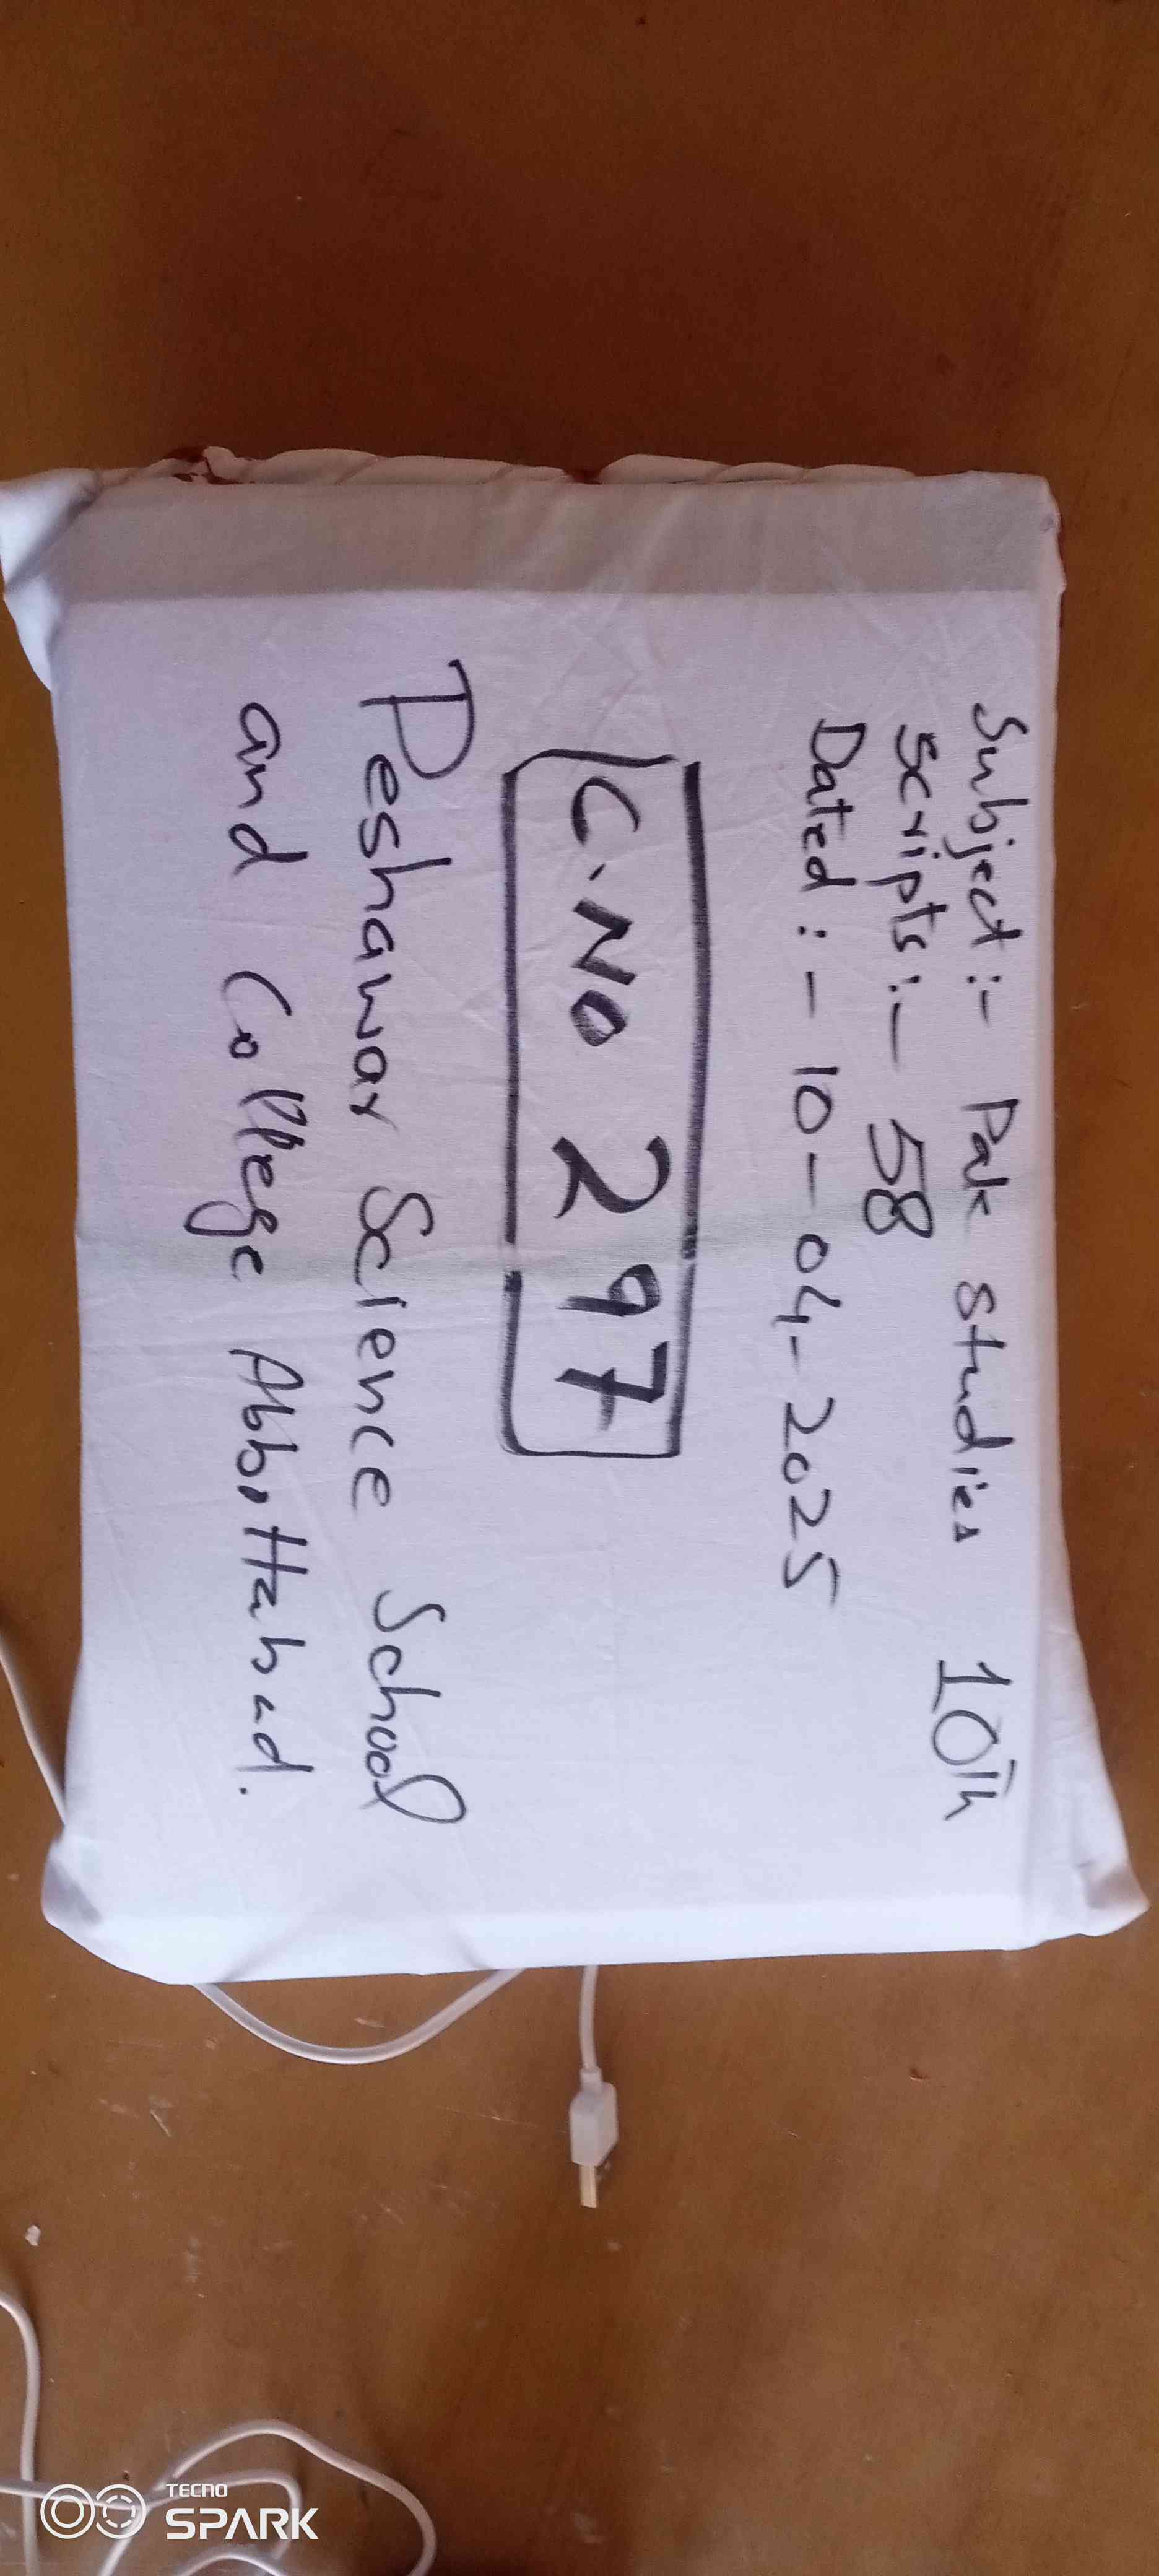 Subject :- Pak Studies 10th
Scripts :- 58
Dated : - 10-04-2025
C.No 297
Peshawar Science School
and College Abbottabad.
TECNO
SPARK